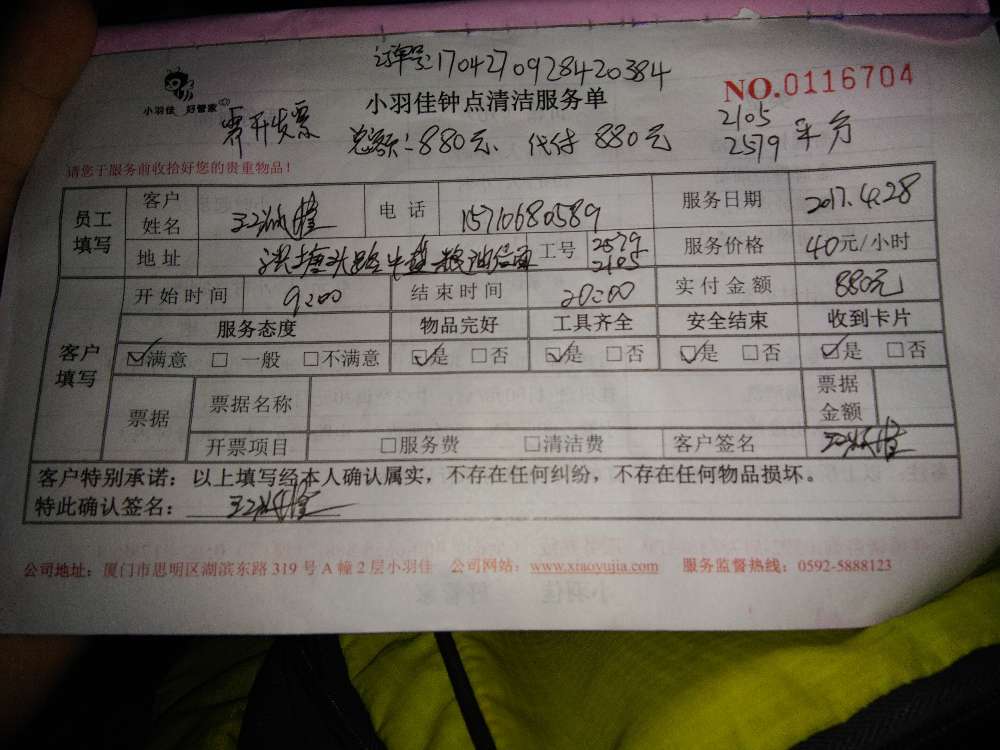 订单号:1704270928420384
小羽佳 好管家
小羽佳钟点清洁服务单
NO.0116704
需开发票
总额:880元、代付880元
2105
2579 平分
请您于服务前收拾好您的贵重物品!
员工填写 客户姓名 电话 15710680589 服务日期 2017.4.28
地址 工号 2579 2105 服务价格 40元/小时
客户填写 开始时间 9:00 结束时间 20:00 实付金额 880元
服务态度 物品完好 工具齐全 安全结束 收到卡片
☑满意 □一般 □不满意 ☑是 □否 ☑是 □否 ☑是 □否 ☑是 □否
票据 票据名称 票据金额
开票项目 □服务费 □清洁费 客户签名
客户特别承诺:以上填写经本人确认属实,不存在任何纠纷,不存在任何物品损坏。
特此确认签名:
公司地址:厦门市思明区湖滨东路319号A幢2层小羽佳 公司网站:www.xiaoyujia.com 服务监督热线:0592-5888123